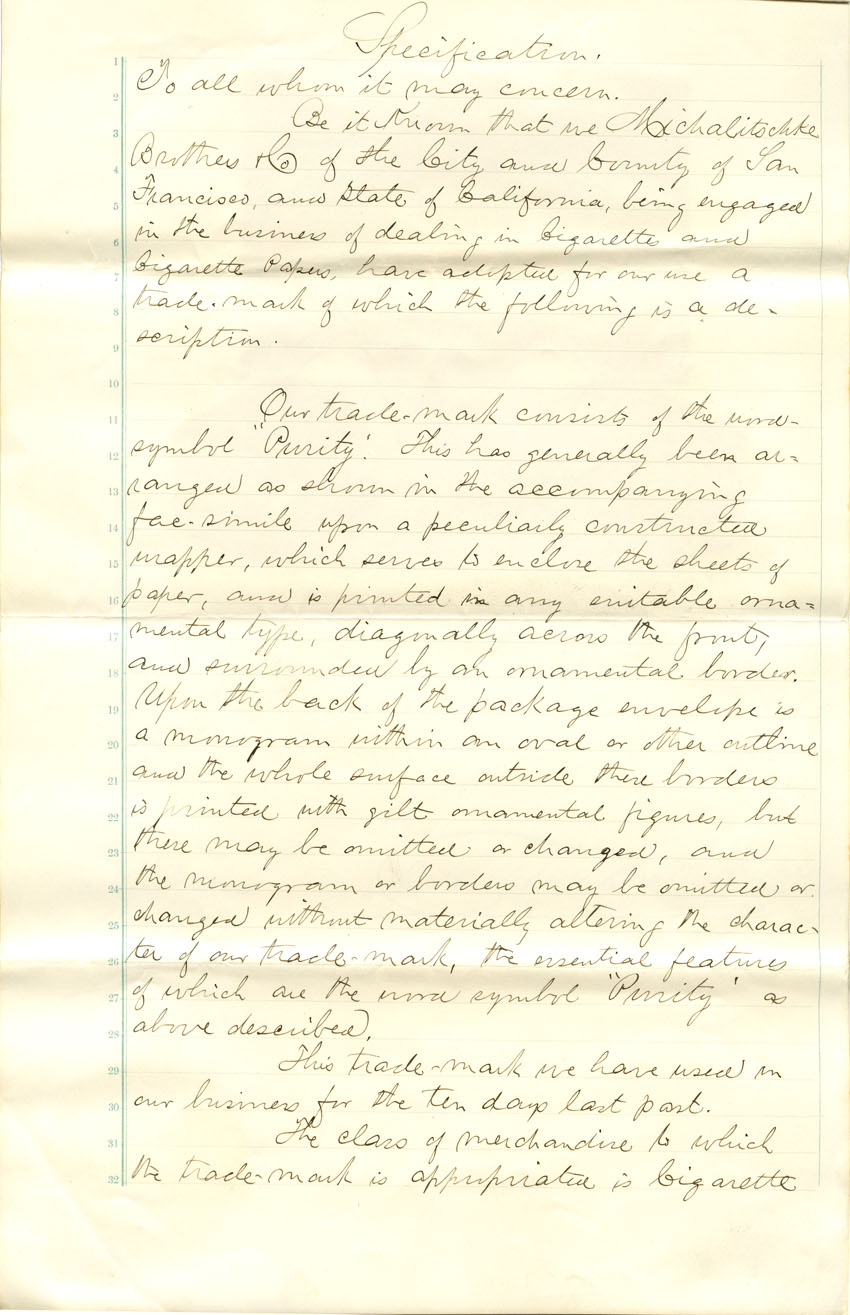 Specification.
1
To all whom it may concern.
2
Be it Known that we Michalitschke
3
Brothers & Co of the City and County of San
4
Francisco, and State of California, being engaged
5
in the business of dealing in Cigarette and
6
Cigarette Papers, have adopted for our use a
7
trade-mark of which the following is a de-
8
scription.
9
10
Our trade-mark consists of the word-
11
symbol "Purity". This has generally been ar=
12
ranged as shown in the accompanying
13
fac-simile upon a peculiarly constructed
14
wrapper, which serves to enclose the sheets of
15
paper, and is printed in any suitable orna=
16
mental type, diagonally across the front,
17
and surrounded by an ornamental border.
18
Upon the back of the package envelope is
19
a monogram within an oval or other outline
20
and the whole surface outside these borders
21
is printed with gilt ornamental figures, but
22
these may be omitted or changed, and
23
the monogram or borders may be omitted or
24
changed without materially altering the charac-
25
ter of our trade-mark, the essential features
26
of which are the word symbol "Purity" as
27
above described.
28
This trade-mark we have used in
29
our business for the ten days last past.
30
The class of merchandise to which
31
the trade-mark is appropriated is Cigarette
32